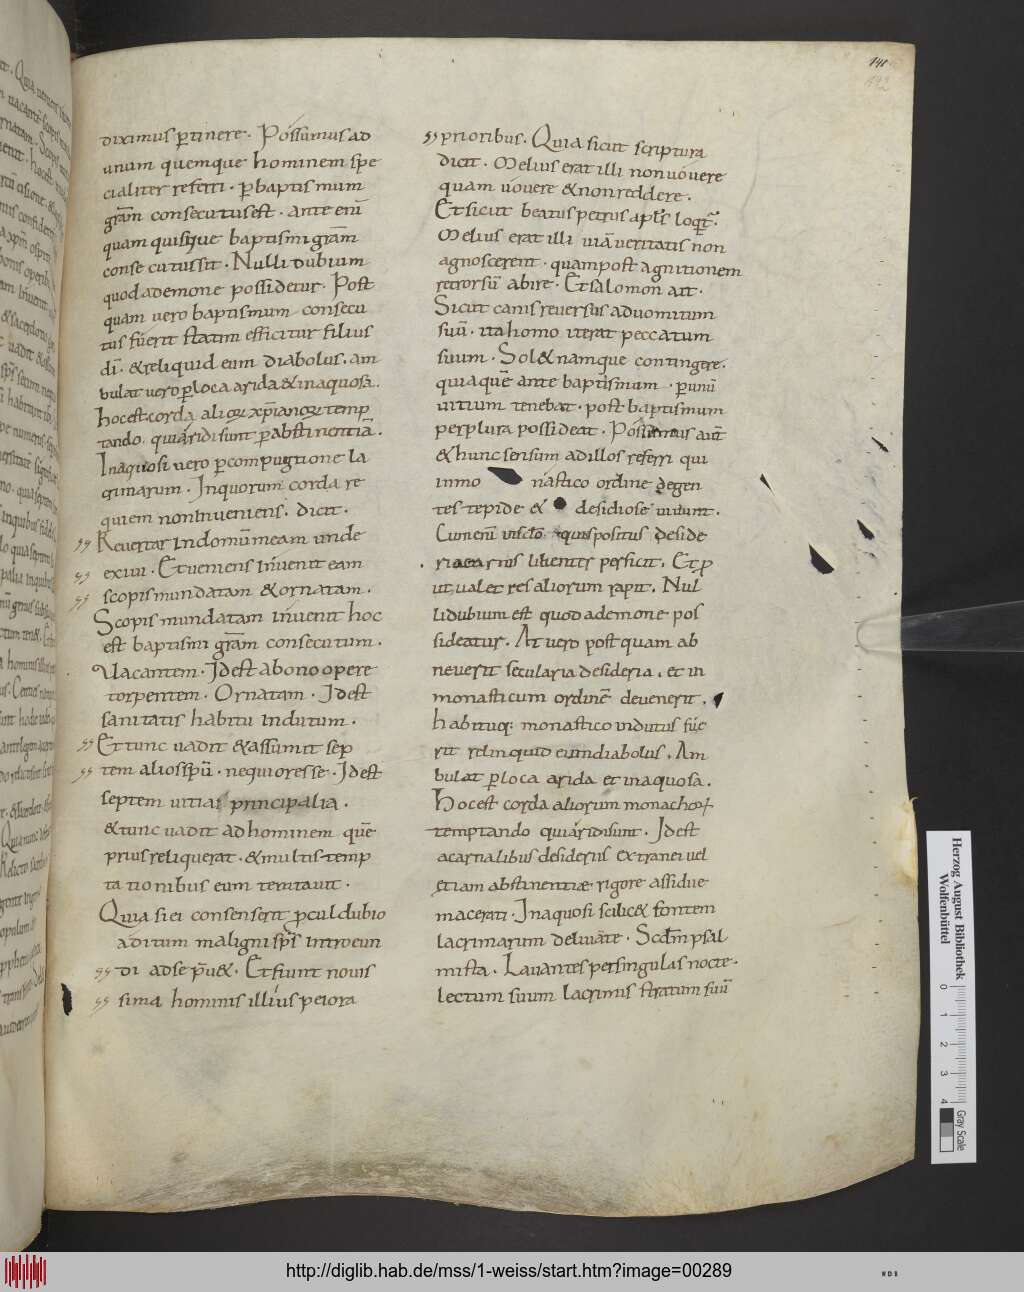 diximus ptinere. Possumus ad
unum quemque hominem spe
cialiter referri. p baptismum
gram consecutus est. ante enī
quam quisque baptismi gram
consecutus sit. Nulli dubium
quod a demone possidetur. Post
quam vero baptismum consecu
tus fuerit statim efficitur filius
dī. & reliquid eum diabolus. am
bulat vero p loca arida & inaquosa.
hoc est corda alioꝝ xp̄ianoꝝ temp
tando. qui aridi sunt p abstinentiā.
Inaquosi vero p compugtione la
crimarum. In quorum corda re
quiem non inveniens. dicit.
Revertar in domū meam unde
exivi. Et veniens invenit eam
scopis mundatam & ornatam.
Scopis mundatam invenit hoc
est baptismi gram consecutum.
Vacantem. Id est a bono opere
torpentem. Ornatam. Id est
sanitatis habitu indutum.
Et tunc vadit & assumit sep
tem alios spū. nequiores se. Id est
septem vitia principalia.
& tunc vadit ad hominem quē
prius reliquerat. & multis temp
tationibus eum temtavit.
Quia si ei consenserit p cul dubio
aditum maligni sps introeun
di ad se pv&. Et fiunt novis
sima hominis illius peiora
prioribus. Quia sicut scriptura
dicit. Melius erat illi non vovere
quam vovere & non reddere.
Et sicut beatus petrus apls loqt.
Melius erat illi viā veritatis non
agnoscerent. quam post agnitionem
retrorsū abire. Et salomon ait.
Sicut canis reversus ad vomitum
suū. ita homo iterat peccatum
suum. Sol& namque contingere.
qui aquē ante baptismum. p unū
vitium tenebat. post baptismum
per plura possideat. Possumus aut
& hunc sensum ad illos referri qui
in mo nastico ordine degen
tes tepide & desidiose vivunt.
Cum enī in sclo quis positus deside
riaearnis libenter perficit. Et p
ut valet res aliorum rapit. Nul
li dubium est quod a demone pos
sideatur. At vero post quam ab
neverit secularia desideria. et in
monasticum ordinē devenerit.
habituq: monastico indutus fue
rit relinquid eum diabolus. Am
bulat p loca arida et inaquosa.
Hoc est corda aliorum monachoꝝ
temptando qui aridi sunt. Id est
a carnalibus desideriis extranei vel
etiam abstinentiæ rigore assidue
macerati. Inaquosi scilic& fontem
lacrimarum deluvante. Scdm psal
mista. Lavantes per singulas nocte.
lectum suum lacrimis stratum suū
141
142
Herzog August Bibliothek
Wolfenbüttel
0 1 2 3 4
Gray Scale
http://diglib.hab.de/mss/1-weiss/start.htm?image=00289